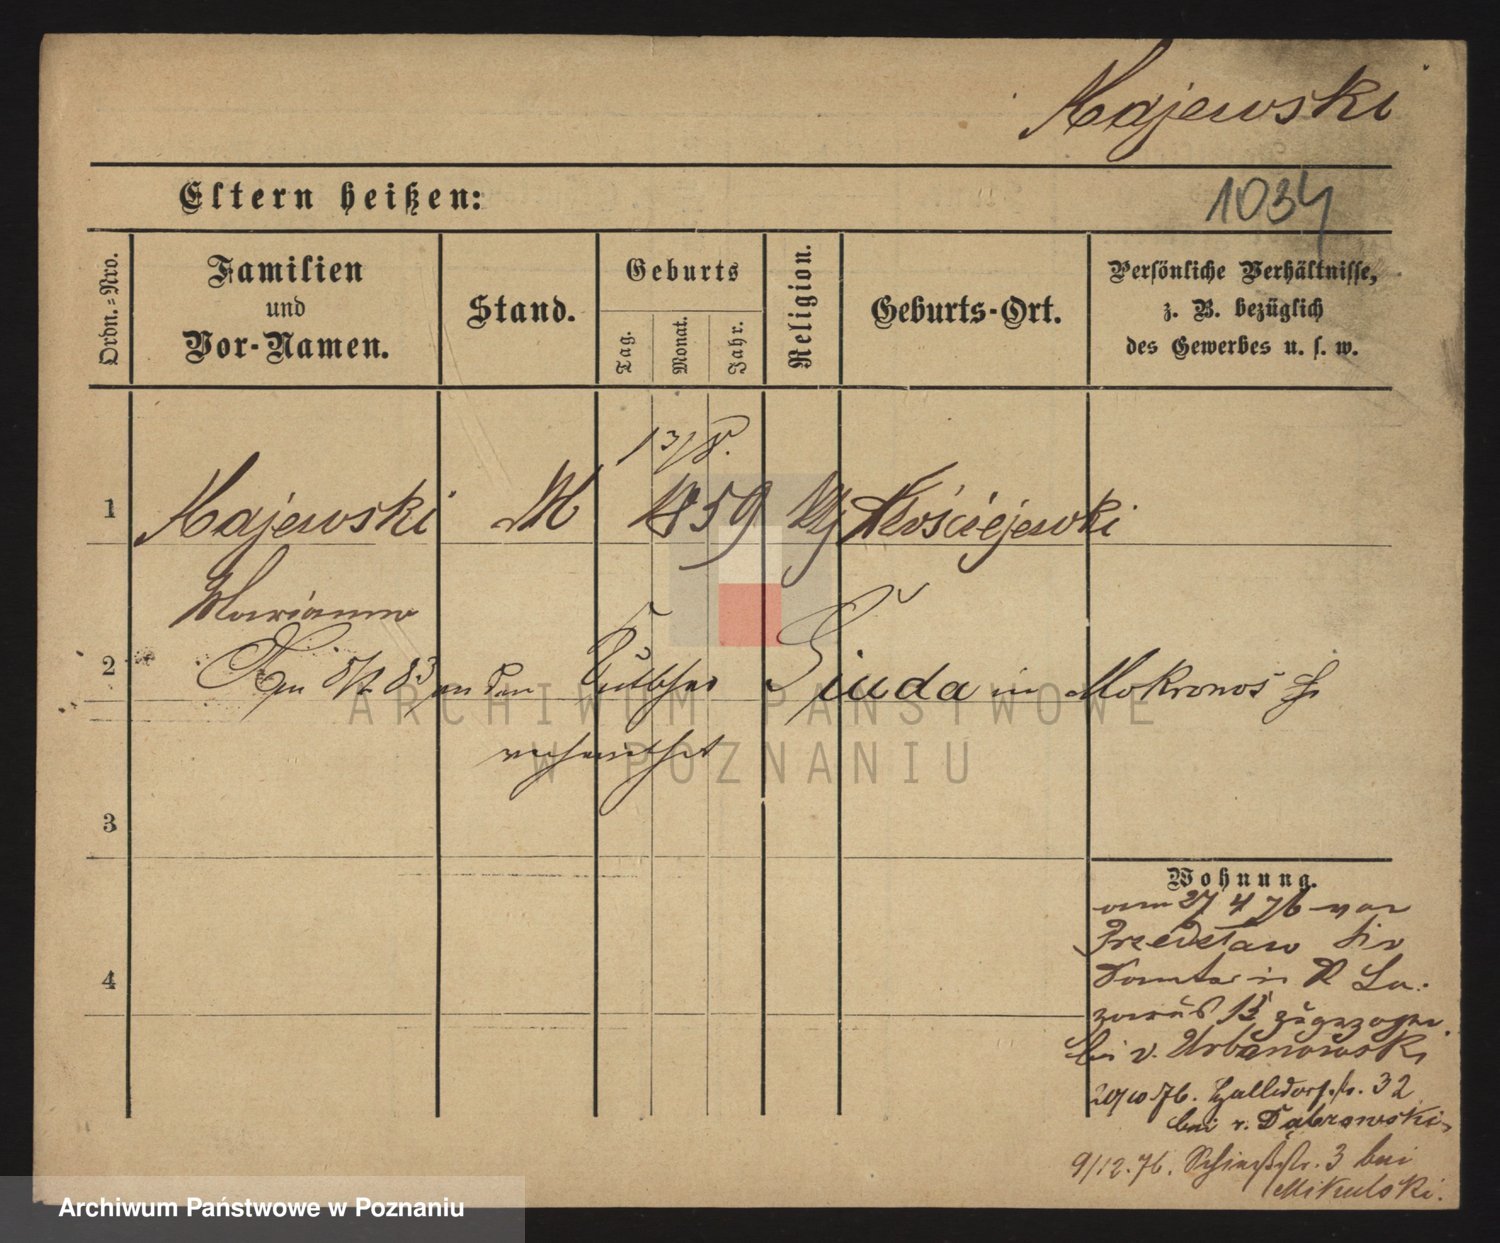 Majewski
Eltern heißen:
1034
Ordn.=Nro.
Familien
und
Vor-Namen.
Stand.
Geburts
Tag.
Monat.
Jahr.
Religion.
Geburts-Ort.
Persönliche Verhältnisse,
z. B. bezüglich
des Gewerbes u. s. w.
13/8.
1 Majewski M 1859 Kościejewki
Marianna
2 83 an den Giuda in Mokronos
verheirathet
ARCHIWUM PAŃSTWOWE
W POZNANIU
3
4
Wohnung.
am 27 4 76 von
Przedstaw hir
in St La-
zarus 13 zugezogen.
bei v. Urbanowski
20/10 76. Halldorfstr. 32
bei v. Dabrowski
9/12. 76. Schießstr. 3 bei
Mikulski.
Archiwum Państwowe w Poznaniu